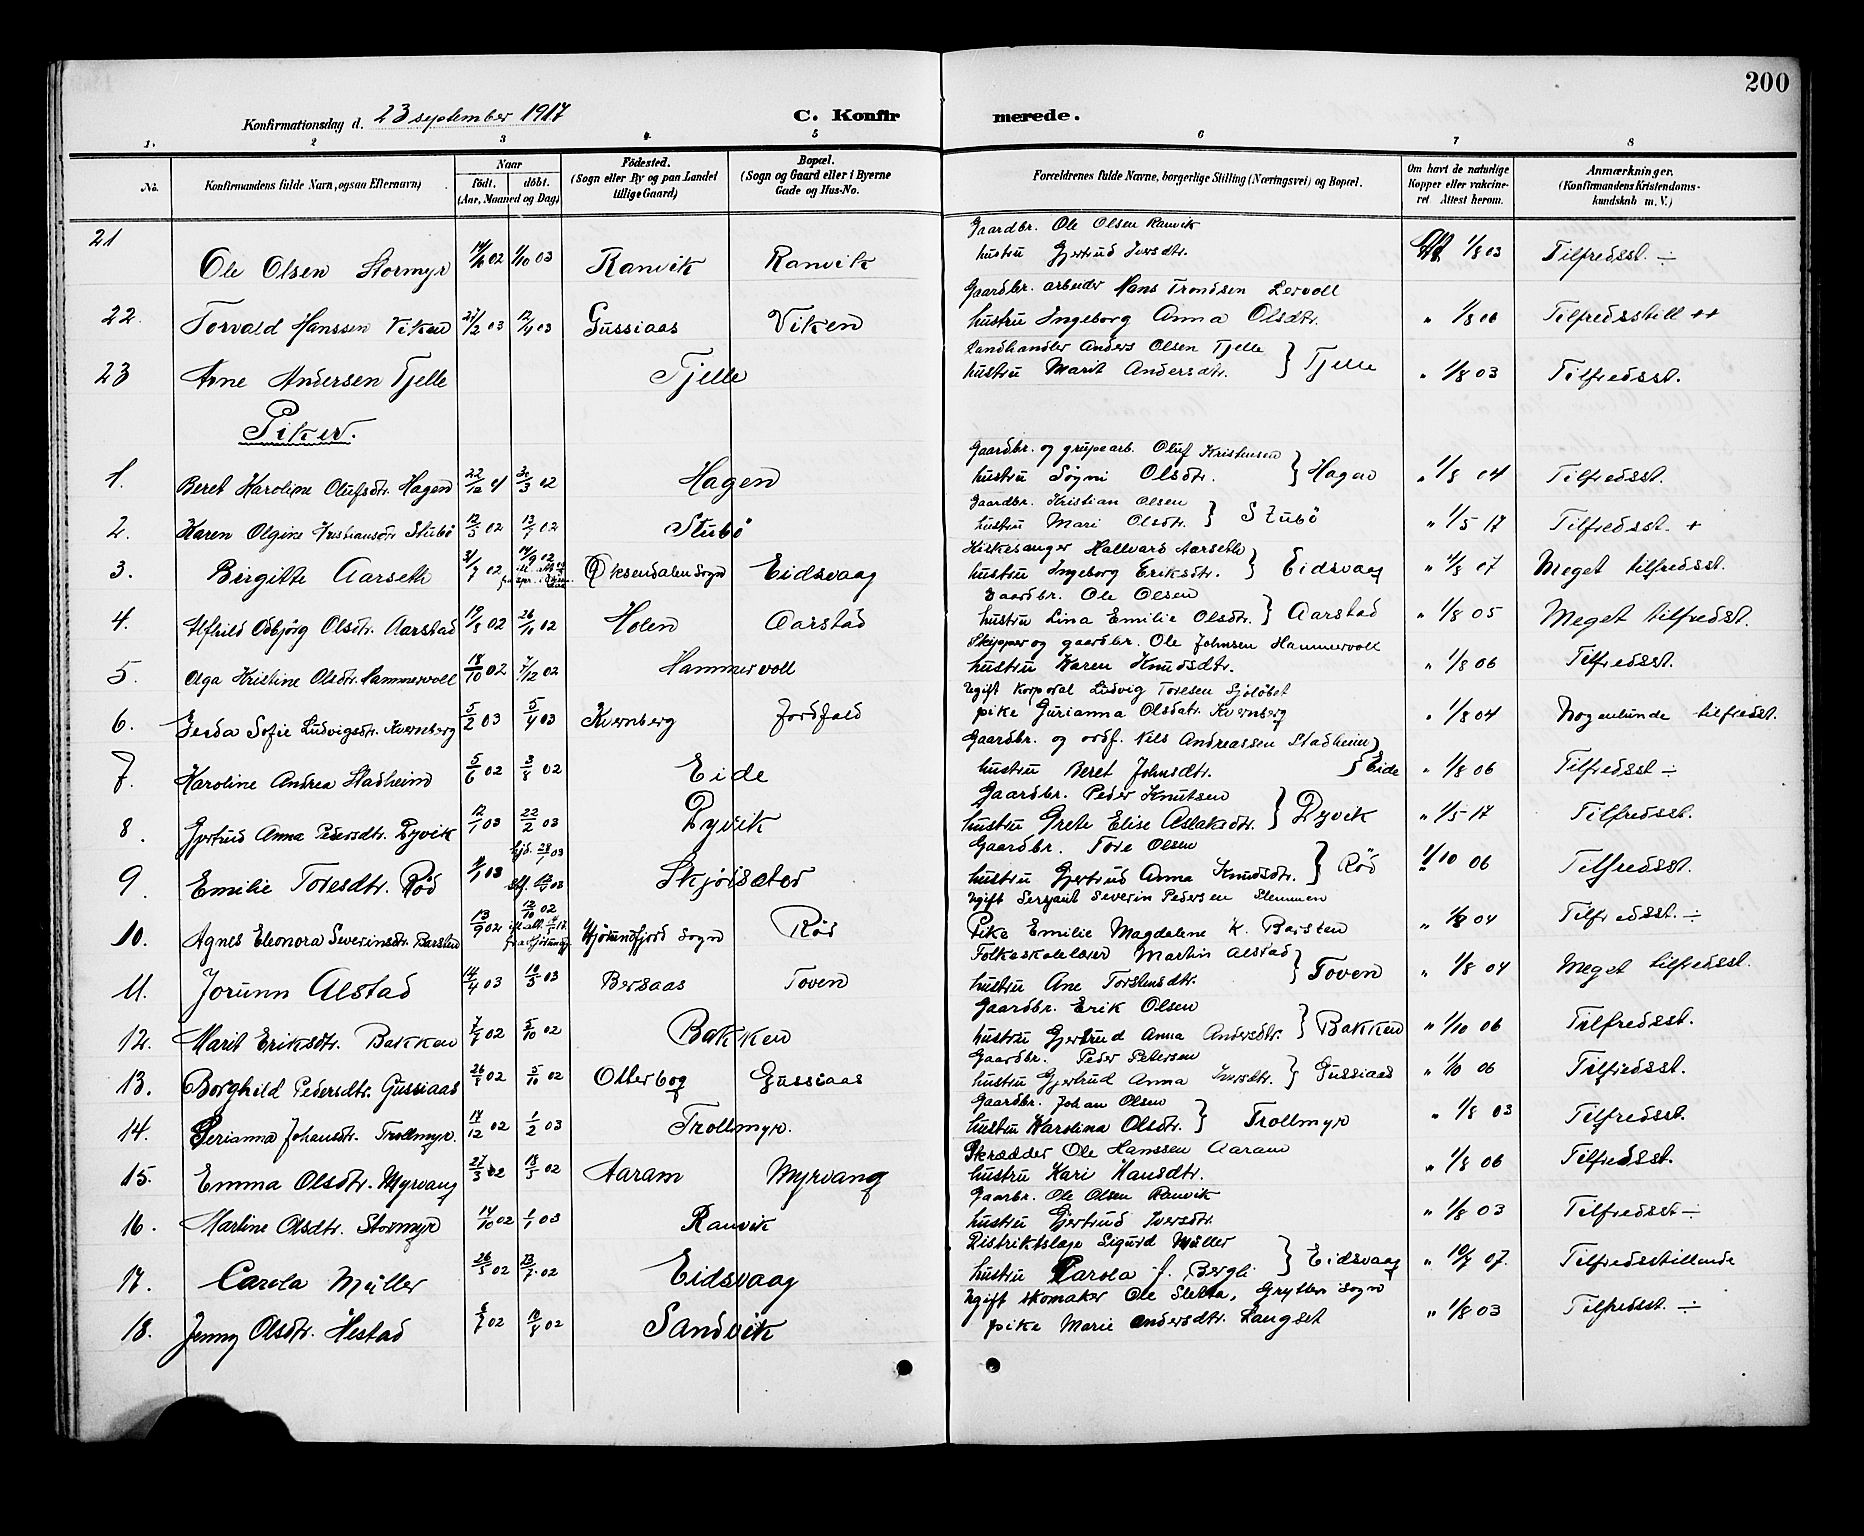 200
Konfirmationsdag d. 23 september 1917 C. Konfirmerede.
1. 2 3 4. 5 6 7 8
No. Konfirmandens fulde Navn, ogsaa Efternavn) Naar født. døbt. (Aar, Maaned og Dag) Fødested. (Sogn eller By og paa Landet tillige Gaard) Bopæl. (Sogn og Gaard eller i Byerne Gade og Hus-No. Forældrenes fulde Navne, borgerlige Stilling (Næringsvei) og Bopæl. Om havt de naturlige Kopper eller vakcineret Attest herom. Anmærkninger. (Konfirmandens Kristendomskundskab m. V.)
Gaardbr. Ole Olsen Ranvik
21 Ole Olsen Stormyr 02 1/10 03 Ranvik Ranvik hustru Gjertrud Iversdtr. 1/8 03 Tilfredsst. ÷
Gaardbr. arbeider Hans Trondsen Lervoll
22. Torvald Hanssen Viken 21/2 03 12/4 03 Gussiaas Viken hustru Ingeborg Anna Olsdtr. " 1/8 06 Tilfredsstill ++
Landhandler Anders Olsen Tjelle
23 Arne Andersen Tjelle Tjelle hustru Marit Andersdtr. } Tjelle " 1/8 03 Tilfredsst.
Piker.
Gaardbr. og grupearb. Oluf Kristensen
1. Beret Karoline Olufsdtr. Hagen 22/12 4/3 02 Hagen hustru Søgni Olsdtr. } Hagen " 1/8 04 Tilfredsst.
Gaardbr. Kristian Olsen
2. Karen Olgine Kristiansdtr Stubø 12/5 02 13/7 02 Stubø hustru Mari Olsdtr. } Stubø " 1/5 17 Tilfredsst. +
Kirkesanger Hallvard Aarseth
3. Birgitte Aarseth 31/7 02 14/9 02 Øksendalen Sogn Eidsvaag hustru Ingeborg Eriksdtr. } Eidsvaag " 1/8 07 Meget tilfredsst.
Gaardbr. Ole Olsen
4. Alfhild Odbjørg Olsdtr. Aarstad 19/8 02 26/10 02 Holen Aarstad hustru Lina Emilie Olsdtr. } Aarstad " 1/8 05 Meget tilfredsst.
Skipper og gaardbr. Ole Johnsen Hammervoll
5. Olga Kristine Olsdtr. Hammervoll 18/10 02 7/12 02 Hammervoll hustru Karen Knudsdtr. " 1/8 06 Tilfredsst.
Ugift Korporal Ludvig Toresen Sjøløbet
6. Gerda Sofie Ludvigsdtr. Kvernberg 5/2 03 5/4 03 Kvernberg Jordfald pike Gurianna Olsdatr. Kvernberg " 1/8 04 Nogenlunde tilfredsst.
Gaardbr. og ordf. Nils Andreassen Stadheim
7. Karoline Andrea Stadheim 5/6 02 3/8 02 Eide hustru Beret Johnsdtr. } Eide " 1/8 06 Tilfredsst ÷
Gaardbr. Peder Knutsen
8. Gjertrud Anna Pedersdtr. Ryvik 12/1 03 22/2 03 Ryvik hustru Grete Elise Aslaksdtr. } Ryvik " 1/5 17 Tilfredsst.
hjd. 28/1 03 Gaardbr. Tore Olsen
9 Emilie Toresdtr. Rød 03 03 Skjølsæter hustru Gjertrud Anna Knudsdtr. } Rød 1/10 06 Tilfredsst.
12/10 02 Ugift Sersjant Severin Pedersen Slemmen
10. Agnes Eleonora Severinsdtr. Barsten 13/9 02 Hjørundfjord Sogn Rød Pike Emilie Magdalene K. Barsten " 1/8 04 Tilfredsst. ÷
Folkeskolelærer Martin Alstad
11. Jorunn Alstad 14/4 03 10/5 03 Bersaas Toven hustru Ane Torstensdtr. } Toven " 1/8 04 Meget tilfredsst.
Gaardbr. Erik Olsen
12. Marit Eriksdtr. Bakken 02 5/10 02 Bakken hustru Gjertrud Anna Andersdtr. } Bakken " 1/10 06 Tilfredsst.
Gaardbr. Peder Petersen
13. Borghild Pedersdtr. Gussiaas 26/8 02 5/10 02 Otterbog Gussiaas hustru Gjertrud Anna Iversdtr. } Gussiaas " 06 Tilfredsst.
Gaardbr. Johan Olsen
14. Perianna Johansdtr. Trollmyr. 17/12 02 1/2 03 Trollmyr. hustru Karolina Olsdtr. } Trollmyr " 1/8 03 Tilfredsst.
Skrædder Ole Hanssen Aaram
15. Emma Olsdtr. Myrvang 27/3 02 18/5 02 Aaram Myrvang hustru Kari Hansdtr. " 1/8 06 Tilfredsst.
Gaarbr. Ole Olsen Ranvik
16. Martine Olsdtr. Stormyr 14/10 02 1/1 03 Ranvik hustru Gjertrud Iversdtr. " 1/8 03 Tilfredsst ÷
Distriktslæge Sigurd Müller
17. Carola Müller 26/5 02 13/7 02 Eidsvaag hustru Carola f. Bergli } Eidsvaag " 07. Tilfredsstillende
Ugift skomaker Ole Sletta, Grytten Sogn
18. Jenny Olsdtr. Hestad 02 02 Sandvik pike Marie Andersdtr. Langset " 1/8 03 Tilfredsst. ÷